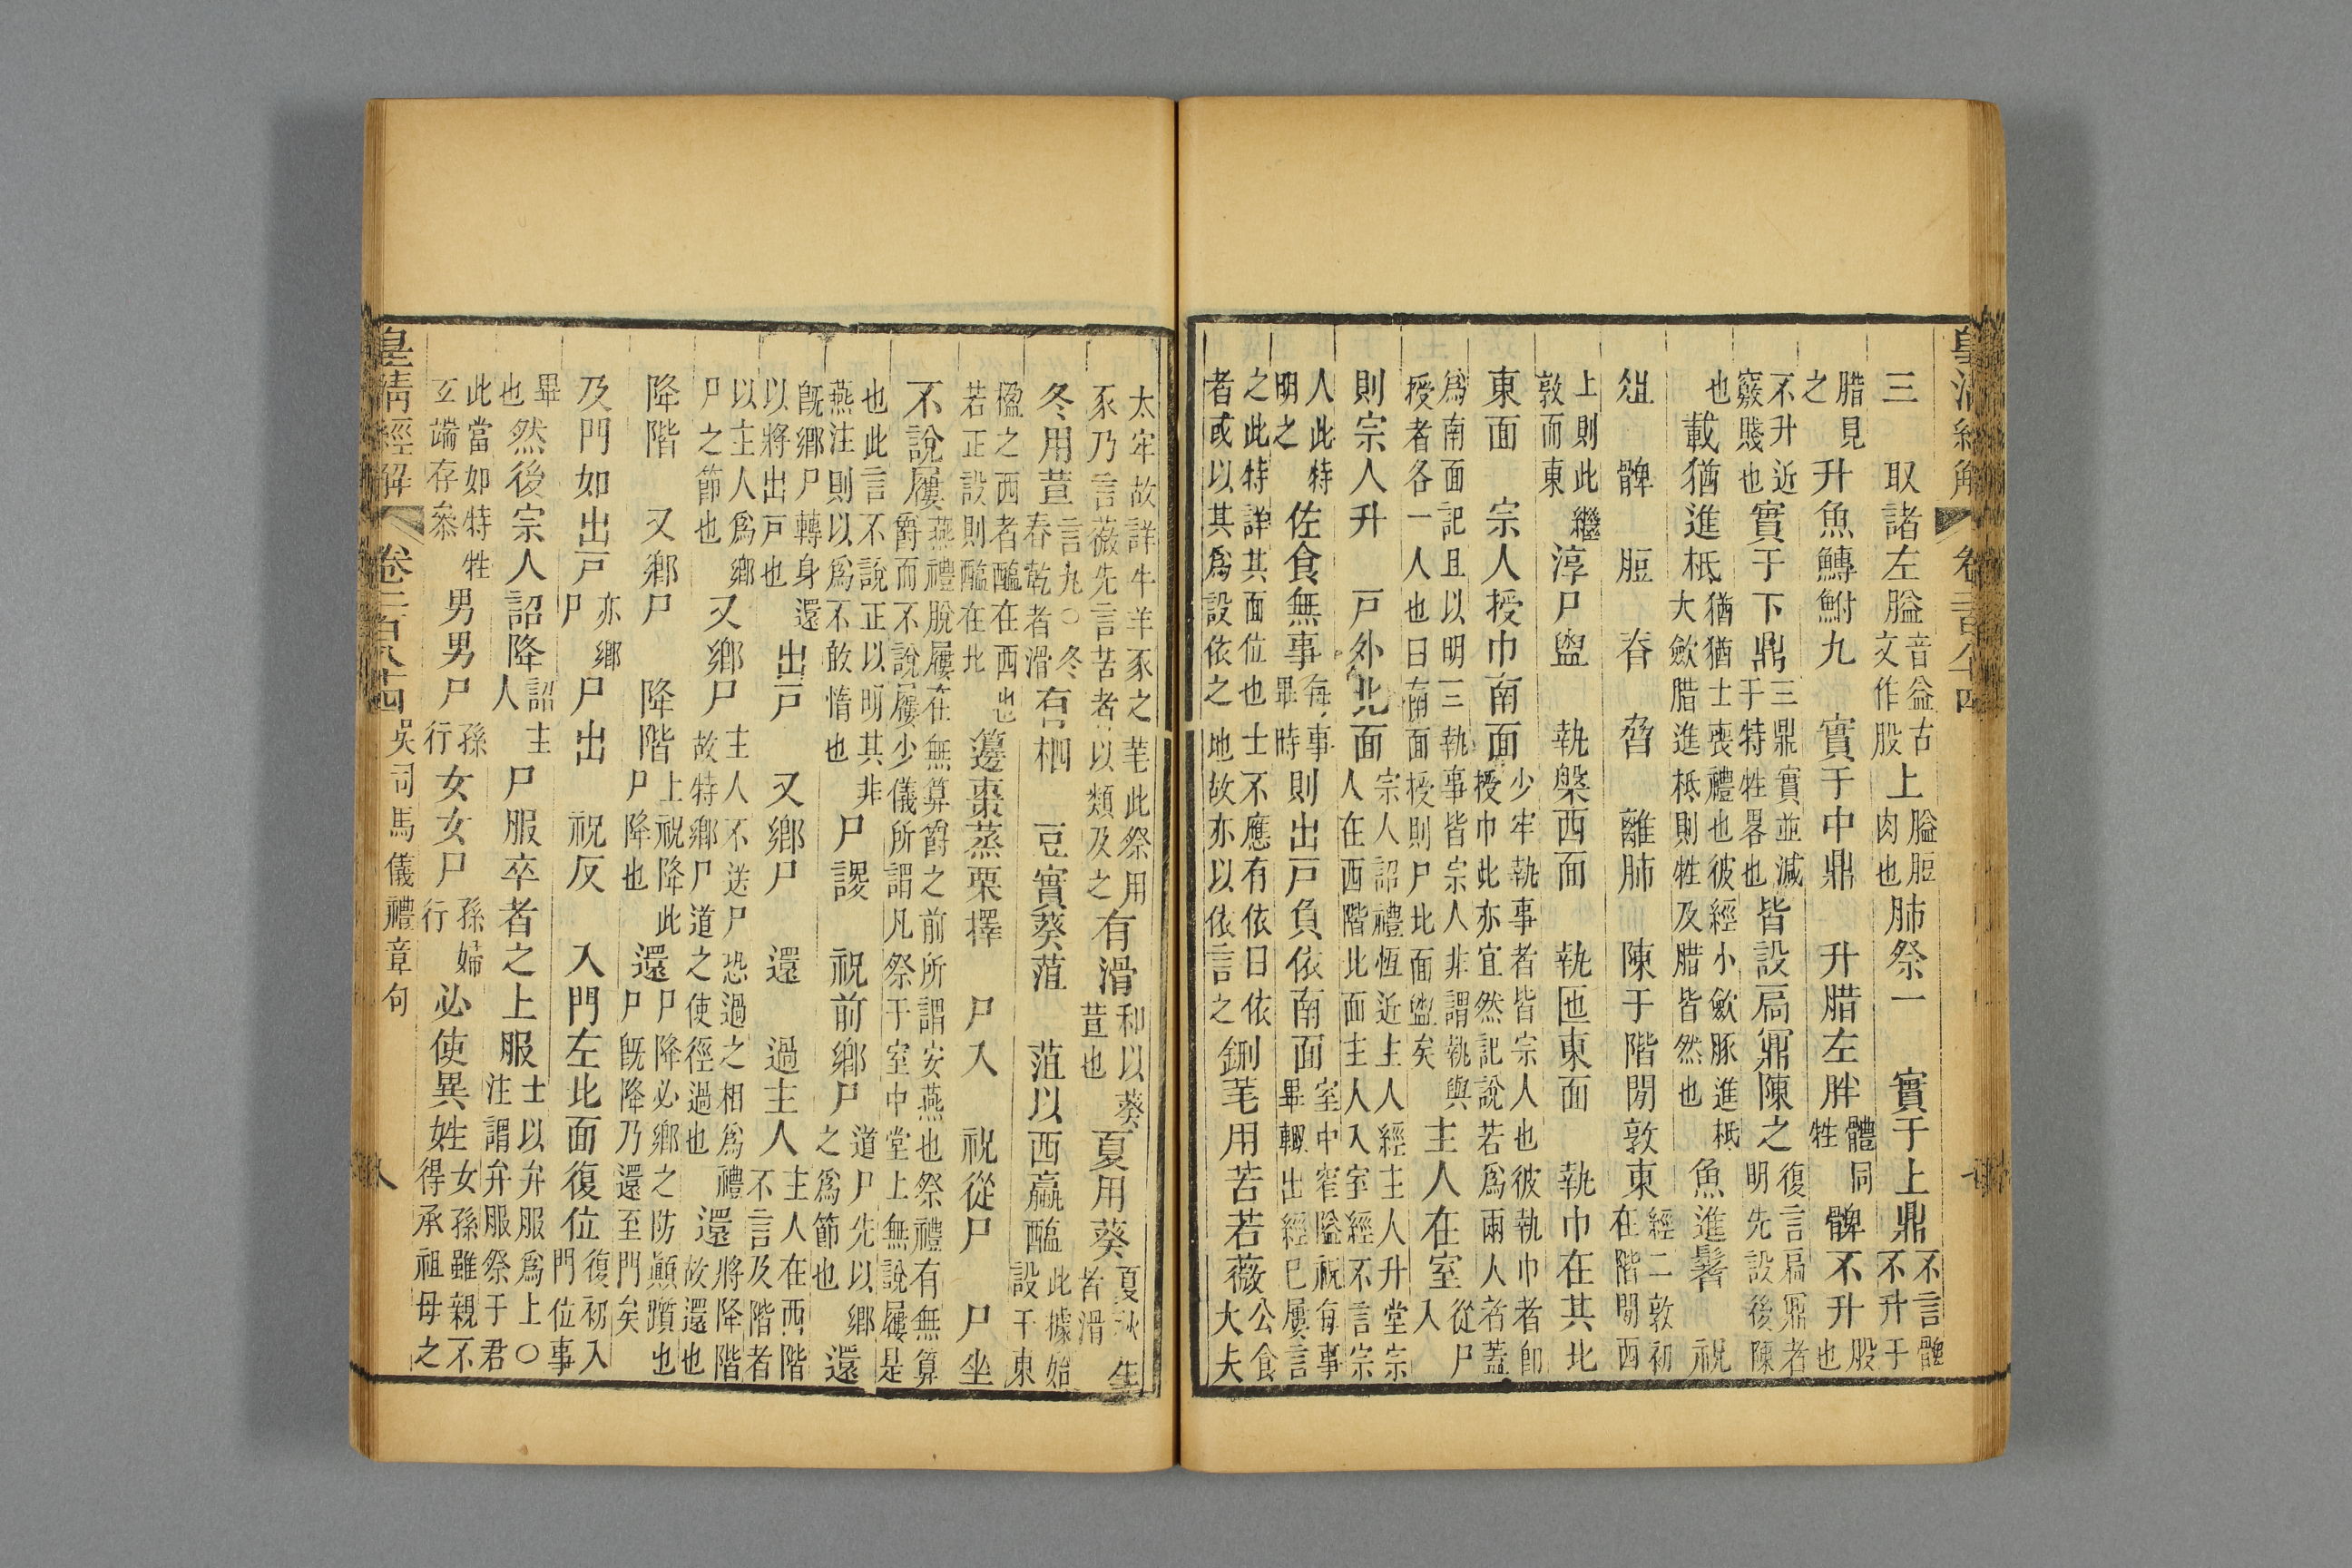 三　取諸左膉音益古文作股上膉脰肉也肺祭一　實于上鼎不言髀不升于
腊見之　升魚鱄鮒九　實于中鼎　升腊左胖體同牲　髀不升股也
不升近竅賤也　實于下鼎三鼎實並減于特牲畧也皆設扃鼏陳之復言扃鼏者明先設後陳
也　載猶進柢猶猶士喪禮也彼經小斂豚進柢大斂腊進柢則牲及腊皆然也　魚進鬐　祝
俎　髀　脰　脊　脅　離肺　陳于階閒敦東經二敦初在階閒西
上則此敦而東　繼　淳尸盥　執槃西面　執匜東面　執巾在其北
東面　宗人授巾南面少牢執事者皆宗人也彼執巾者卽授巾此亦宜然記說若爲兩人者蓋
爲南面記且以明三執事皆宗人非謂執與授者各一人也曰南面授則尸北面盥矣　主人在室從尸入
則宗人升　戶外北面宗人詔禮恆近主人經主人升堂宗人在西階北面主人入室經不言宗
人此特明之　佐食無事每事畢時則出戶負依南面室中窄隘祝每事畢輒出經已屢言
之此特詳其面位也士不應有依曰依者或以其爲設依之地故亦以依言之　鉶芼用苦若薇公食大夫
太牢故詳牛羊豕之芼此祭用豕乃言薇先言苦者以類及之有滑和以葵荁也　夏用葵夏秋生者滑
冬用荁言九〇冬春乾者滑　有柶　豆實葵菹　菹以西蠃醢此據始設于東
楹之西者醢在西也若正設則醢在北　籩棗蒸栗擇　尸入　祝從尸　尸坐
不說屨燕禮脫屨在無算爵之前所謂安燕也祭禮有無算爵而不說屨少儀所謂凡祭于室中堂上無說屨是
也此言不說正以明其非燕注則以爲不敢惰也　尸謖　祝前鄉尸道尸先以鄉之爲節也　還
旣鄉尸轉身還以將出戶也　出戶　又鄉尸　還　過主人主人在西階不言及階者
以主人爲鄉尸之節也　又鄉尸主人不送尸恐過之相爲禮故特鄉尸道之使徑過也　還將降階故還也
降階　又鄉尸　降階上祝降此尸降也　還尸降必鄉之防顚躓也尸旣降乃還至門矣
及門如出戶亦鄉尸　尸出　祝反　入門左北面復位復初入門位事
畢也　然後宗人詔降詔主人　尸服卒者之上服士以弁服爲上〇注謂弁服祭于君
此當如特牲玄端存叅　男男尸孫行　女女尸孫婦行　必使異姓女孫雖親不得承祖母之
皇清經解　卷二百八十四　吳司馬儀禮章句　八